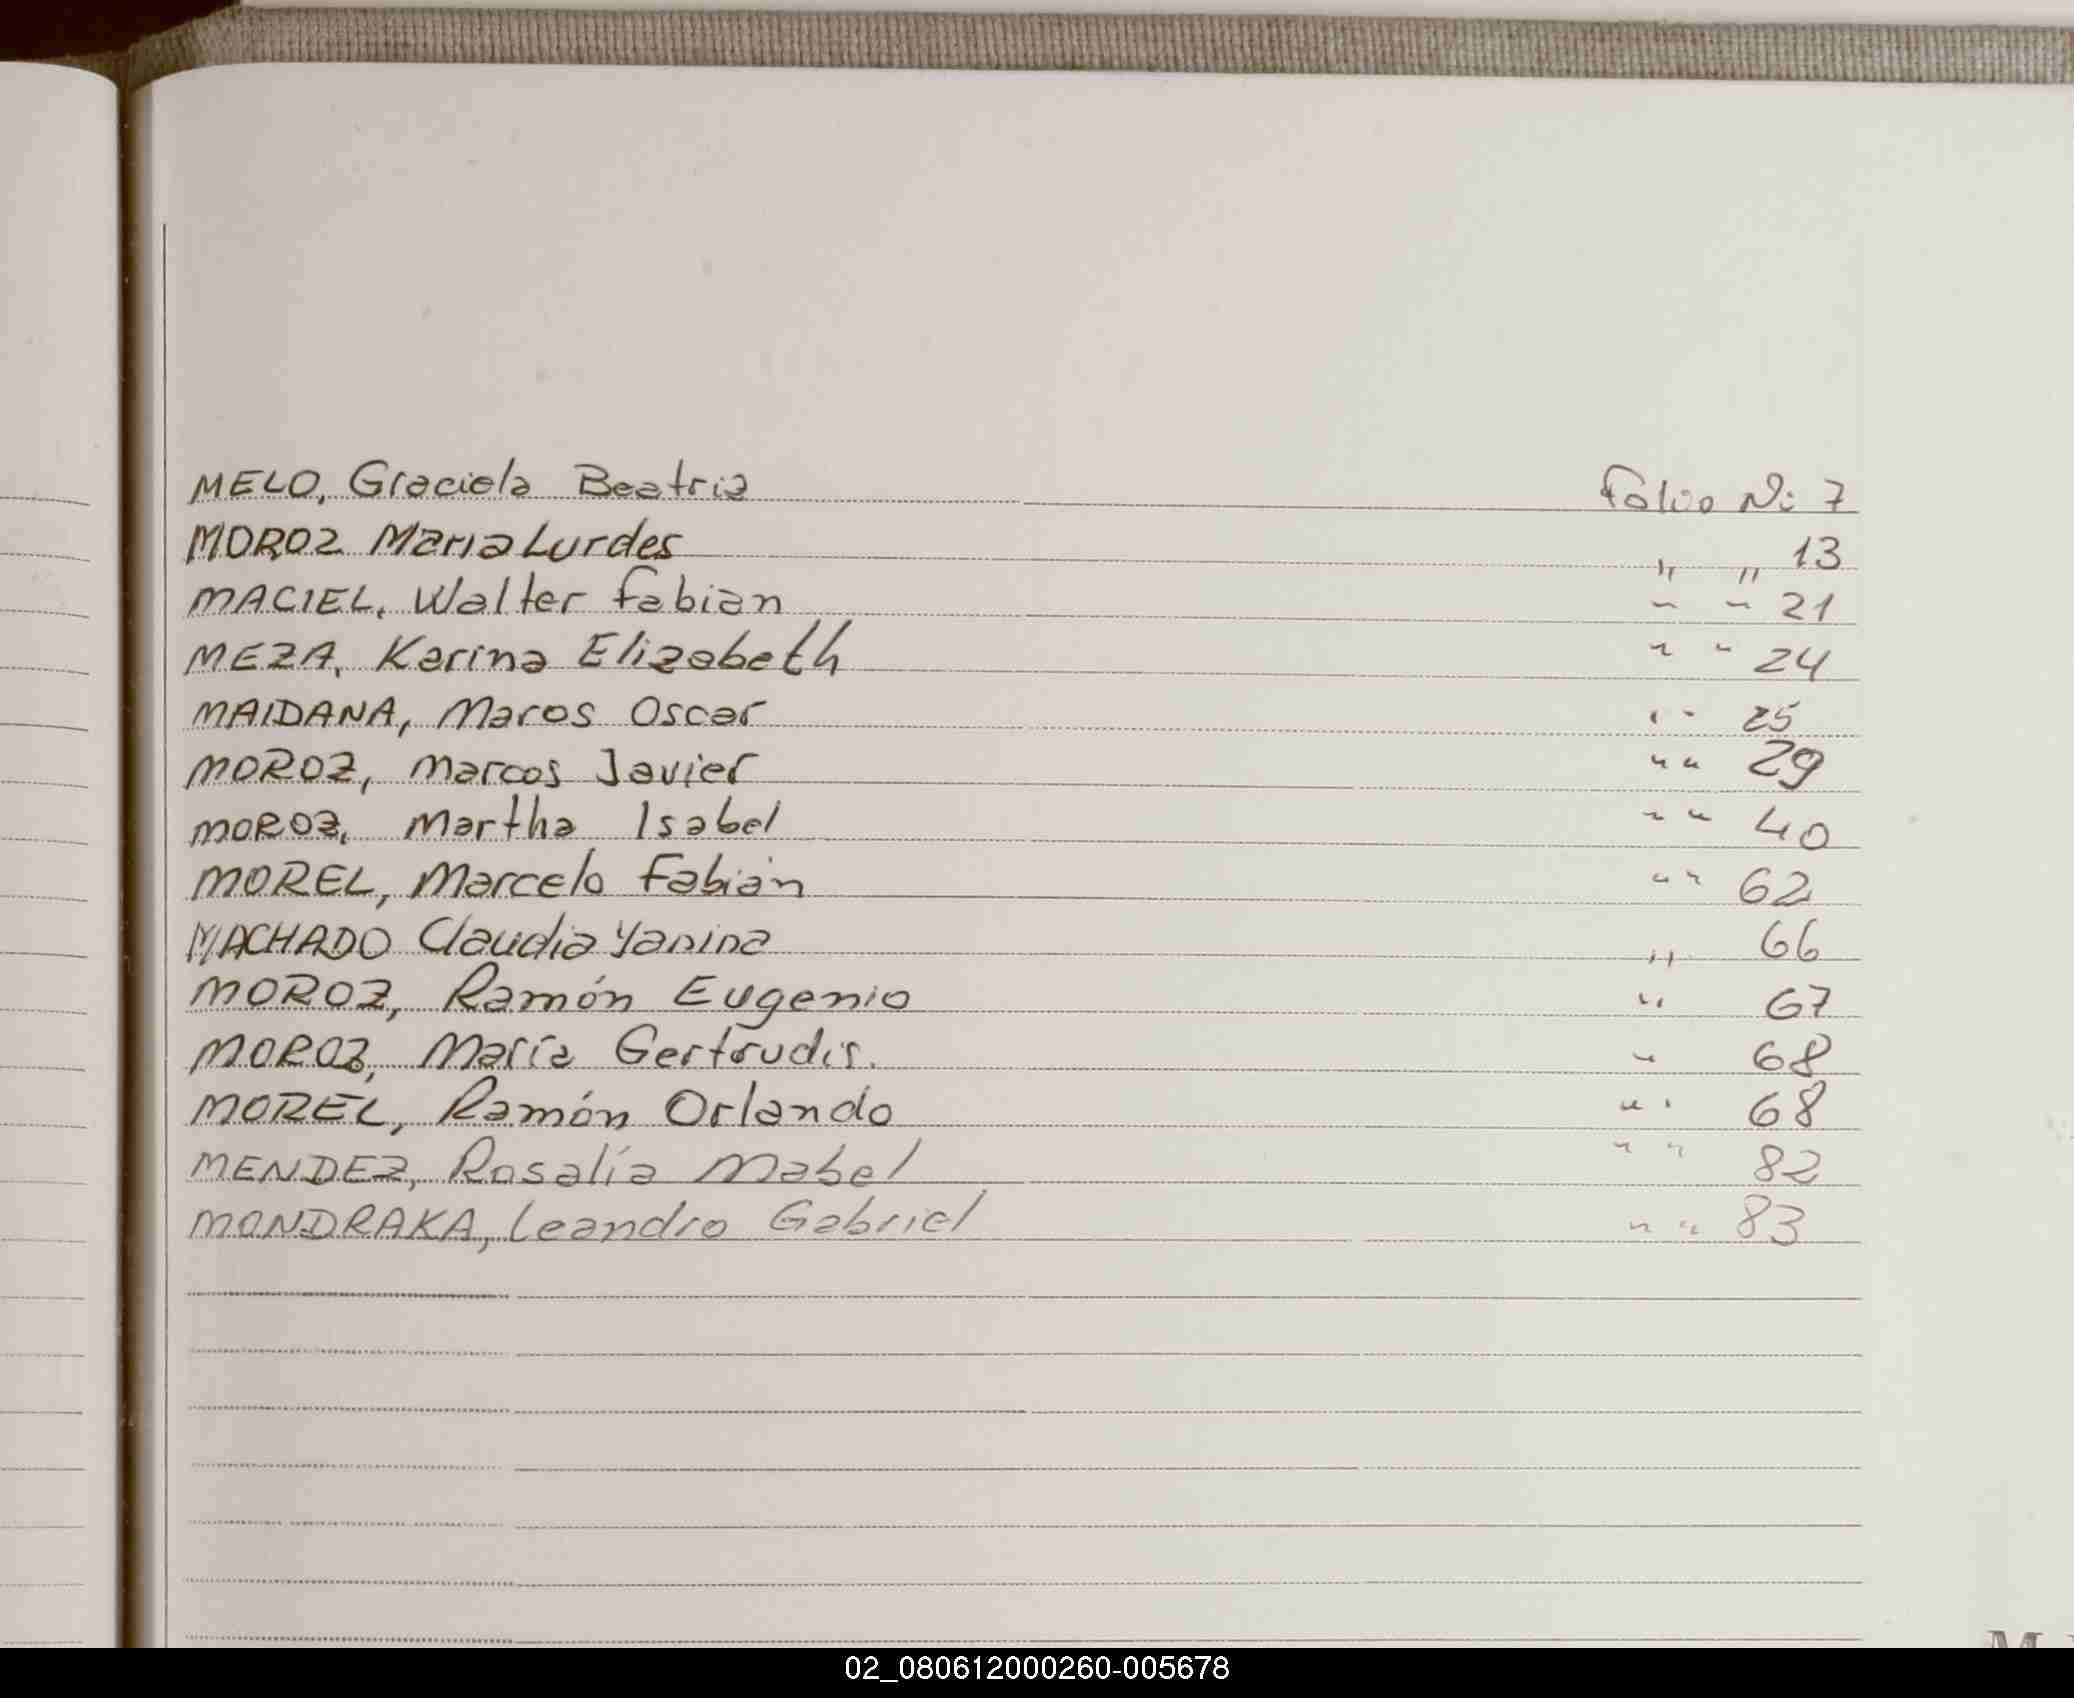 MELO, Graciela Beatriz Folio Nº 7
MOROZ Maria Lurdes " " 13
MACIEL, Walter Fabian " " 21
MEZA, Karina Elizabeth " " 24
MAIDANA, Maros Oscar " " 25
MOROZ, Marcos Javier " " 29
MOROZ, Martha Isabel " " 40
MOREL, Marcelo Fabián " " 62
MACHADO Claudia Yanina " 66
MOROZ, Ramón Eugenio " 67
MOROZ, María Gertrudis. " 68
MOREL, Ramón Orlando " " 68
MENDEZ, Rosalía Mabel " " 82
MONDRAKA, Leandro Gabriel " " 83
02_080612000260-005678